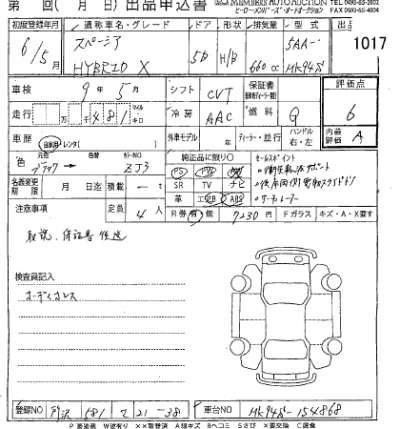 第 回( 月 日) 出品申込書 MEMBERS AUTO AUCTION
初度登録年月 通称車名・グレード ドア 形状 排気量 型式 出品
6/5月 スペーシア HYBRID X 5D H/B 660cc 5AA- MK94S 1017
車検 9年5月 シフト CVT 保証書 評価点
走行 481 冷房 AAC 燃料 G 6
車歴 自家用・レンタ( ) 外車モデル ディーラー・並行 ハンドル 右・左 内装評価 A
色 元色 ブラック 色替 カラーNO ZJ3 純正品に限り○ セールスポイント
PS PW ・衝突軽減サポート
名義変更期限 月 日迄 積載 t SR TV ナビ ・後席両側電動スライドドア
革 エアB ABS
注意事項 定員 4人 R券 有 価 7230円 Fガラス キズ・A・X要す
取説、保証書 後送
検査員記入
オーディオレス
登録NO 所沢 581 て 21-38 車台NO MK94S-154868
P要塗装 W波有り XX取替済 Aキズ Bヘコミ Sさび X要交換 C腐食